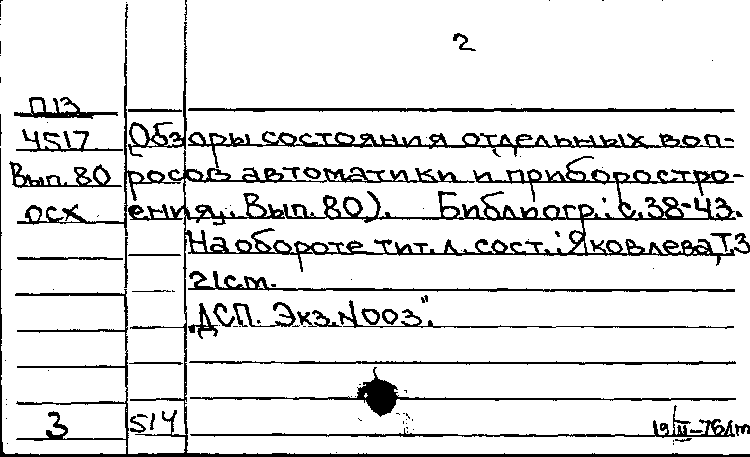 2
П13
4517 Обзоры состояния отдельных воп-
Вып. 80 росов автоматики и приборостро-
осх ения,. Вып. 80). Библиогр.: с. 38-43.
На обороте тит. л. сост.: Яковлева, Т.З
21 cm.
"ДСП. Экз. N 003".
3 514